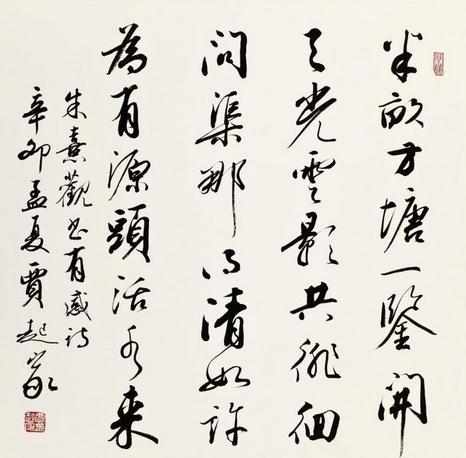 半畝方塘一鑒開
天光雲影共徘徊
問渠那得清如許
為有源頭活水来
朱熹觀书有感詩
辛卯孟夏賈起家